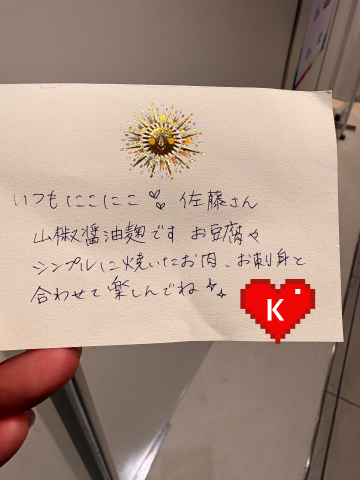 いつもにこにこ♡♡ 佐藤さん
山椒醤油麹です お豆腐や
シンプルに焼いたお肉、お刺身と
合わせて楽しんでね
K